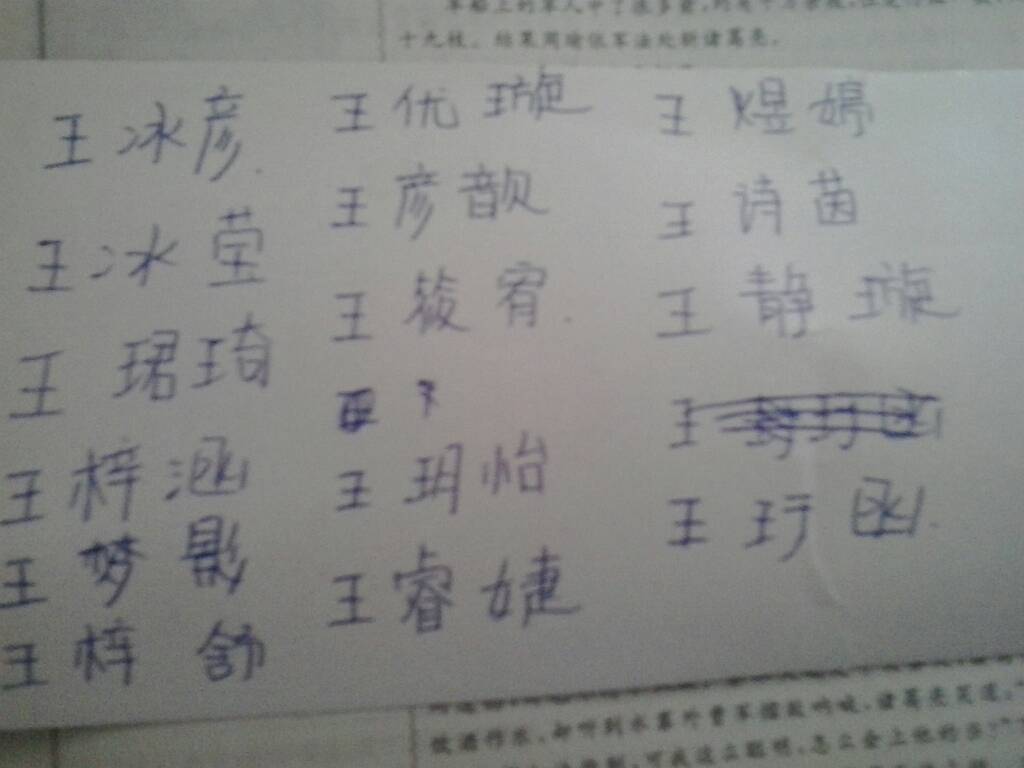 十九枝。结果周瑜依军法处斩诸葛亮。
王冰彦.
王冰莹
王珺琦
王梓涵
王梦影
王梓舒
王优璇
王彦歆
王筱宥.
王玥怡
王睿婕
王煜婷
王诗茵
王静璇
王玗函.
放酒作乐,却听到水寨外曹军擂鼓呐喊,诸葛亮笑道,"
可我这么聪明,怎么会上他的当?"